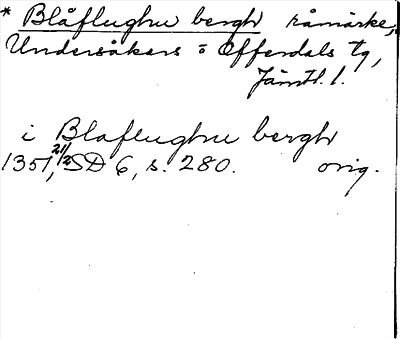 * Blåflughu bergh råmärke,
Undersåkers o Offerdals tg,
Jämtl. l.
i Blaflughu bergh
1351 21/2, SD 6, s. 280. orig.